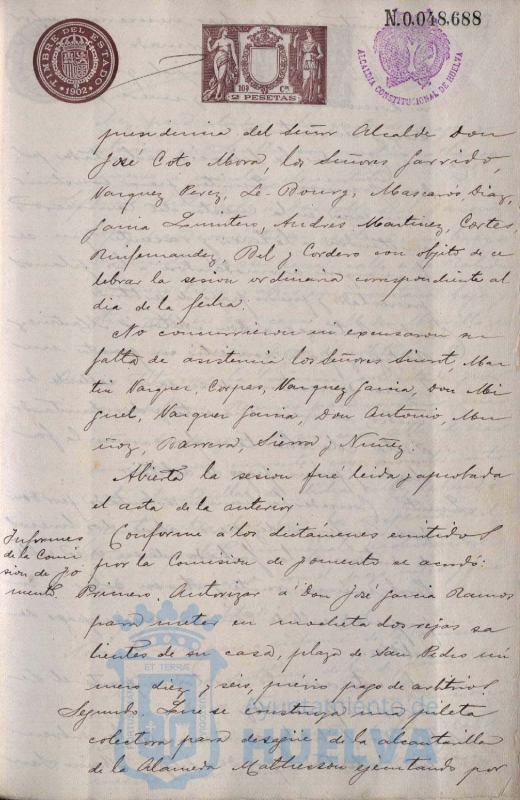 N.0.048.688
TIMBRE DEL ESTADO
1902
10ª Cª
2 PESETAS
ALCALDIA CONSTITUCIONAL DE HUELVA
presidencia del Señor Alcalde Don
José Coto Mora, los Señores Garrido,
Vazquez Perez, Le-Bourg, Mascarós, Diaz,
Garcia Andres Martinez, Cortes,
Ruifernandez, Bel y Cordero con objeto de ce
lebrar la sesion ordinaria correspondiente al
dia de la fecha.
No concurrieron ni excusaron su
falta de asistencia los Señores Siurot, Mar
tin Vazquez, Corpas, Vazquez Garcia, Don Mi
guel, Vazquez Garcia, Don Antonio, Mu
ñoz, Barrera, Sierra y Nuñez.
Abierta la sesion fué leida y aprobada
el acta de la anterior
Informes
de la Comi
sion de Fo
mento.
Conforme á los dictámenes emitidos
por la Comision de Fomento se acordó:
Primero. Autorizar á Don José Garcia Ramos
para meter en mocheta dos rejas sa
lientes de su casa, plaza de San Pedro nú
mero diez y seis, prévio pago de arbitrios
Segundo. Que se construya una pileta
colectora para desagüe de la alcantarilla
de la Alameda Mathesson ejecutando por
ET TERRAE
Ayuntamiento de
HUELVA